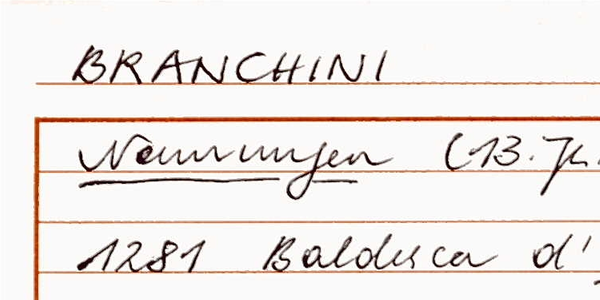 BRANCHINI
Nennungen (13. Jh.
1281 Baldesca d'